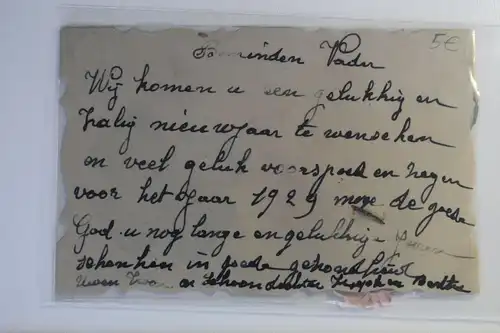 5€
Beminden Vader
Wij komen u een gelukkig en
zalig nieuwjaar te wenschen
en veel geluk voorspoed en zegen
voor het jaar 1929 moge de goede
God u nog lange en gelukkige jaren
schenken in goede gezondheid
uwen Zoon en schoondochter Joseph en Bertha